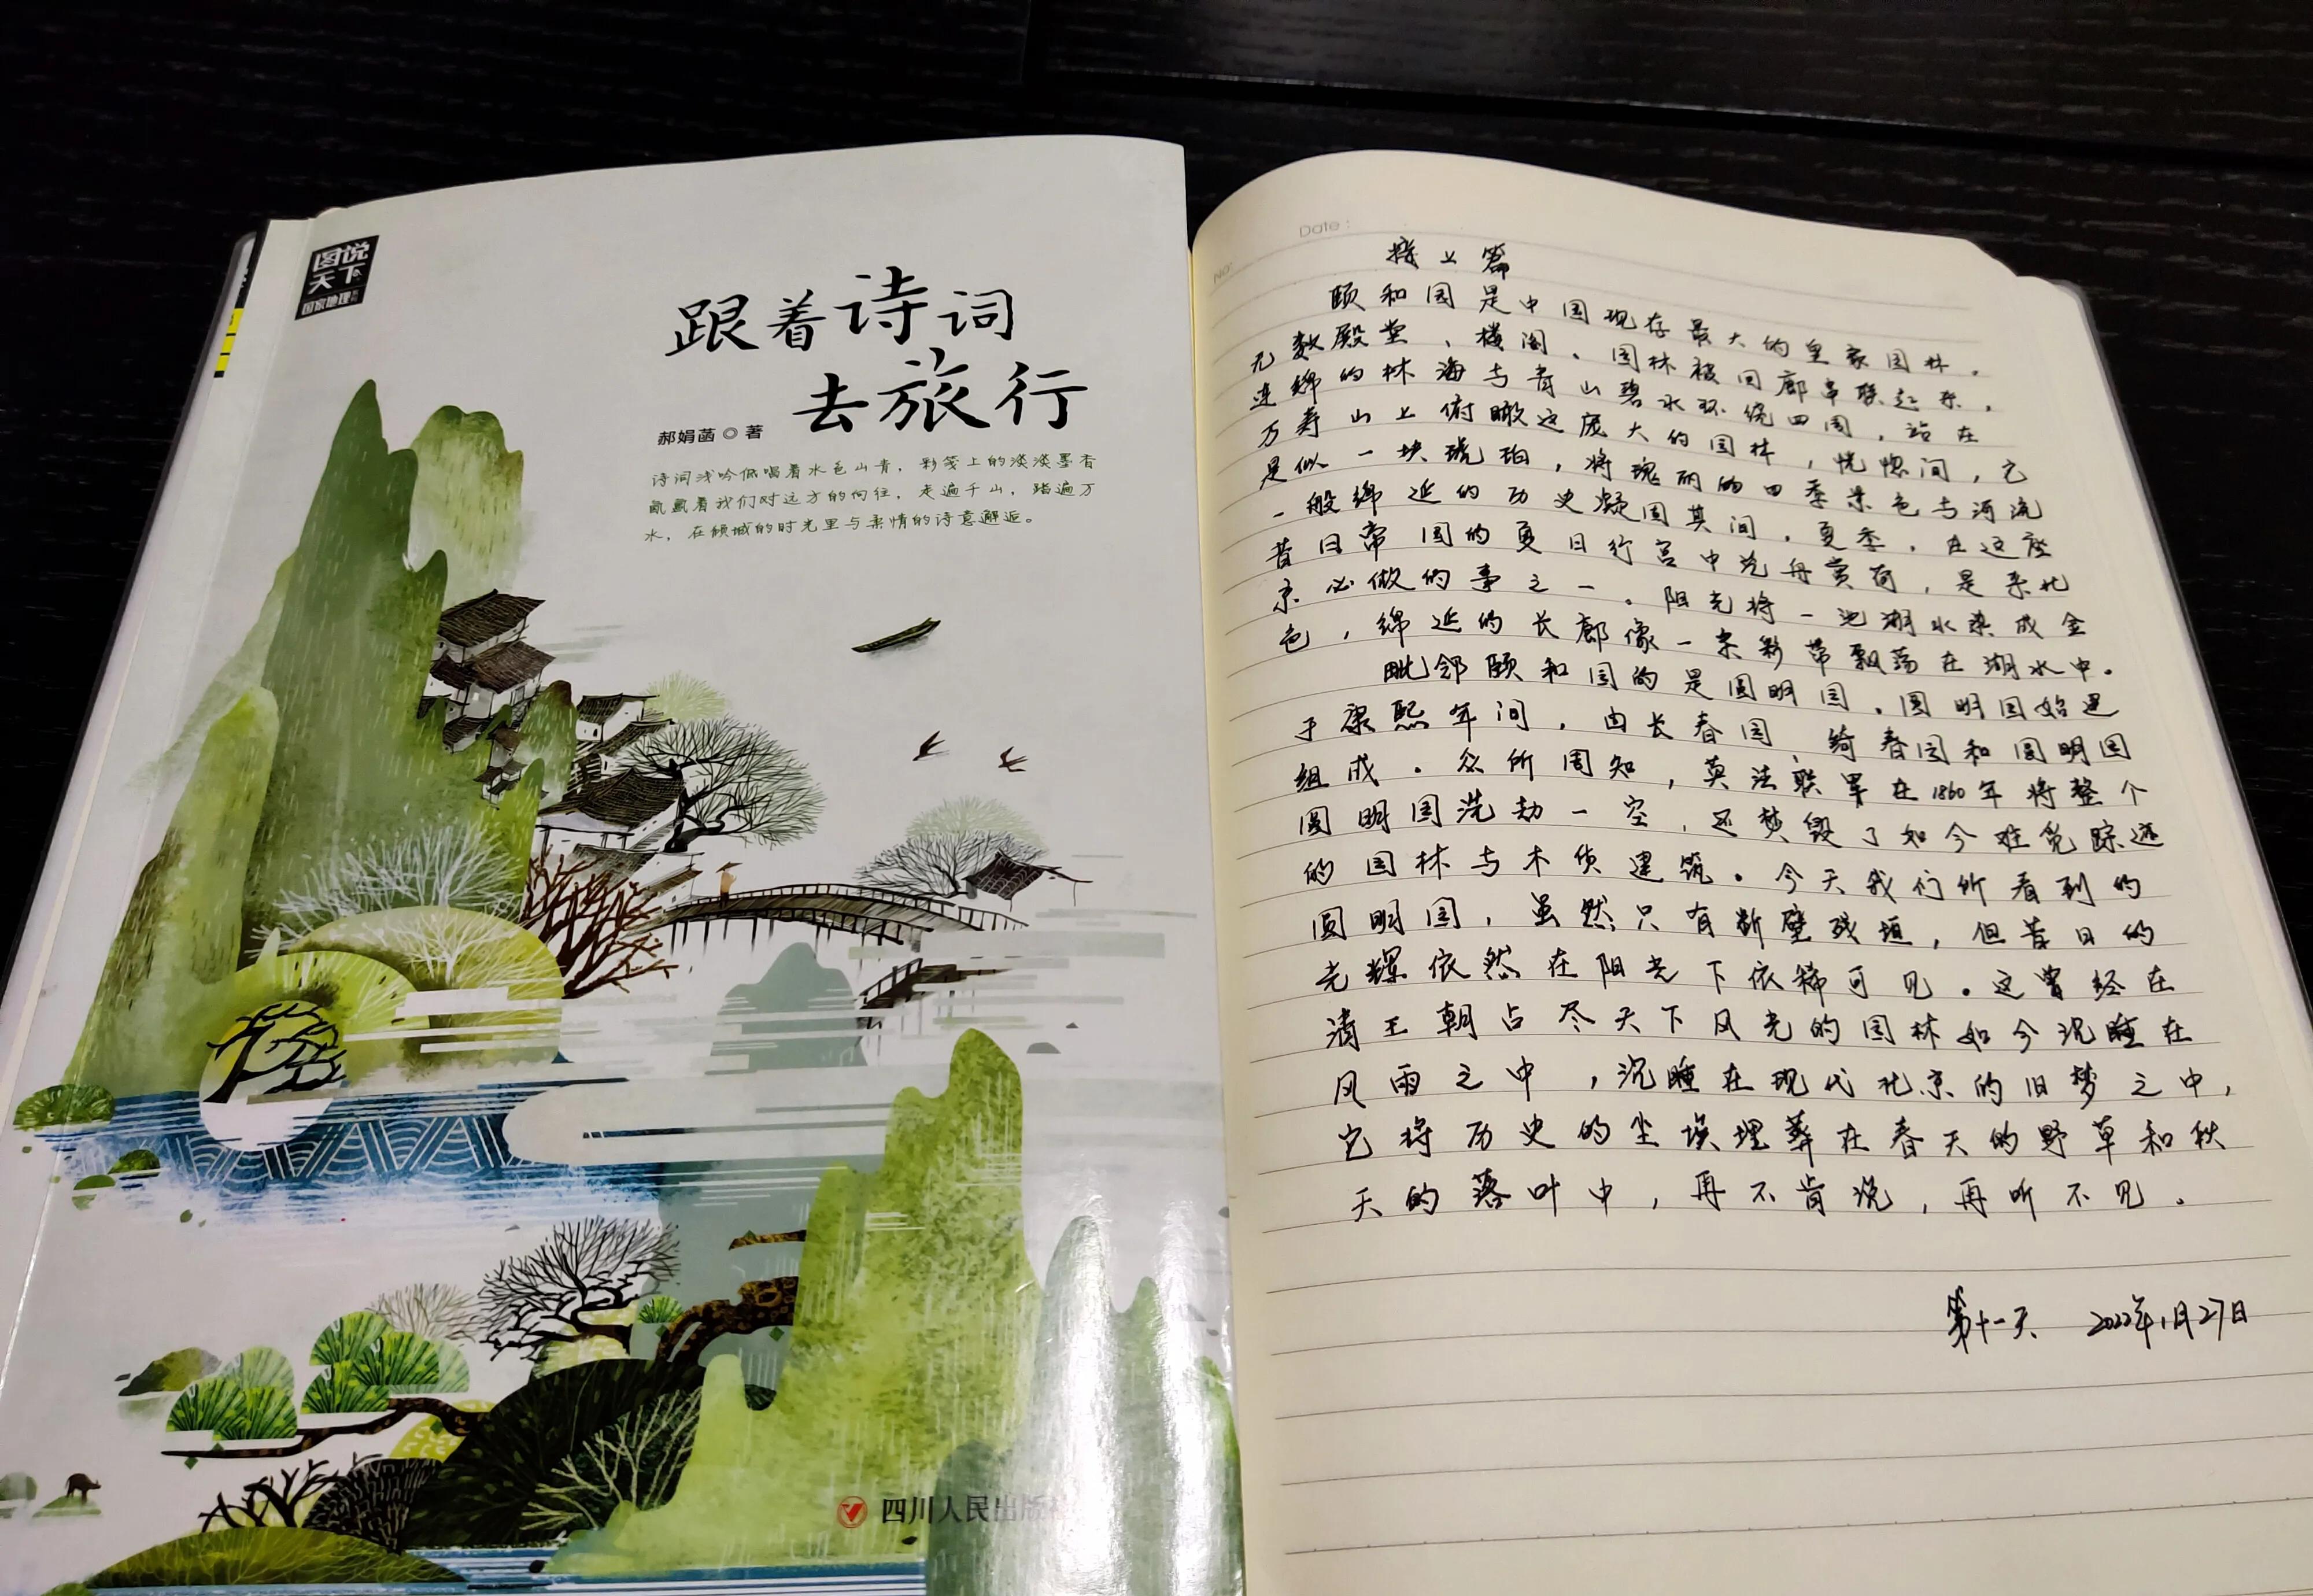 图说
天下
国家地理系列
跟着诗词
去旅行
郝娟菡◎著
诗词浅吟低唱着水色山青，彩笺上的淡淡墨香
氤氲着我们对远方的向往，走遍千山，踏遍万
水，在倾城的时光里与柔情的诗意邂逅。
四川人民出版社
Date:
No:
接上篇
颐和园是中国现存最大的皇家园林。
无数殿堂、楼阁、园林被回廊串联起来，
连绵的林海与青山碧水环绕四周，站在
万寿山上俯瞰这庞大的园林，恍惚间，它
是似一块琥珀，将瑰丽的四季景色与河流
一般绵延的历史凝固其间。夏季，在这座
昔日帝国的夏日行宫中泛舟赏荷，是来北
京必做的事之一。阳光将一池湖水染成金
色，绵延的长廊像一条彩带飘荡在湖水中。
毗邻颐和园的是圆明园。圆明园始建
于康熙年间，由长春园、绮春园和圆明园
组成。众所周知，英法联军在1860年将整个
圆明园洗劫一空，还焚毁了如今难觅踪迹
的园林与木质建筑。今天我们所看到的
圆明园，虽然只有断壁残垣，但昔日的
光辉依然在阳光下依稀可见。这曾经在
清王朝占尽天下风光的园林如今沉睡在
风雨之中，沉睡在现代北京的旧梦之中，
它将历史的尘埃埋葬在春天的野草和秋
天的落叶中，再不肯说，再听不见。
第十一天 2022年1月27日